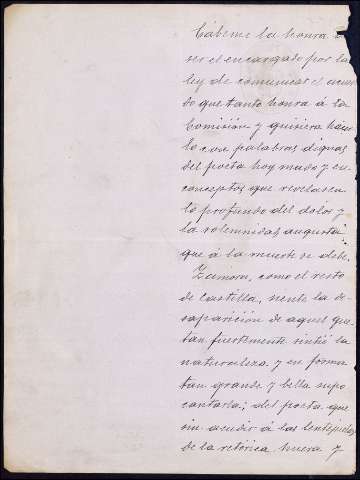 Cábeme la honra de
ser el encargado por la
ley de comunicar el acuer
do que tanto honra á la
Comisión y quisiera hacer
lo con palabras dignas
del poeta hoy mudo y en
conceptos que revelasen
lo profundo del dolor y
la solemnidad augusta
que á la muerte se debe.
Zamora, como el resto
de Castilla, siente la de
saparición de aquel que
tan fuertemente sintió la
naturaleza y en forma
tan grande y bella supo
cantarla; del poeta que
sin acudir á las lentejuelas
de la retórica huera y